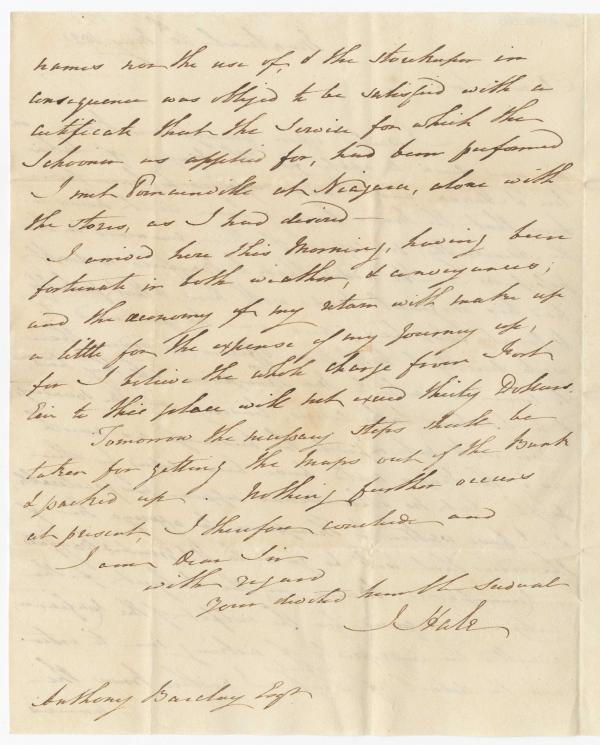 names nor the use of, & the storekeeper in
consequence was obliged to be satisfied with a
certificate that the service for which the
Schooner was applied for, had been performed
I met at Niagara, alone with
the stores, as I had desired—
I arrived here this Morning, having been
fortunate in both weather, & conveyances;
and the œconomy of my return will make up
a little for the expense of my Journey up,
for I believe the whole charge from Fort
Erie to this place will not exceed thirty Dollars.
Tomorrow the necessary steps shall be
taken for getting the Maps out of the Bank
& packed up. Nothing further occurs
at present I therefore conclude and
I am Dear Sir
with regard
Your devoted humble Servant
J Hale
Anthony Barclay Esqr